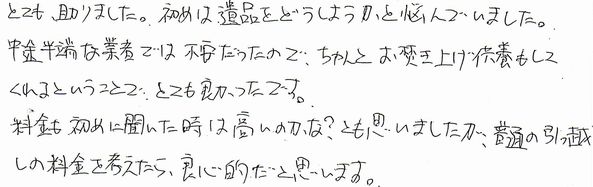 とても助りました。初めは遺品をどうしようかと悩んでいました。
中途半端な業者では不安だったので、ちゃんとお焚き上げ供養もして
くれるということで、とても良かったです。
料金も初めに聞いた時は高いのかな?とも思いましたが、普通の引っ越
しの料金を考えたら、良心的だと思います。